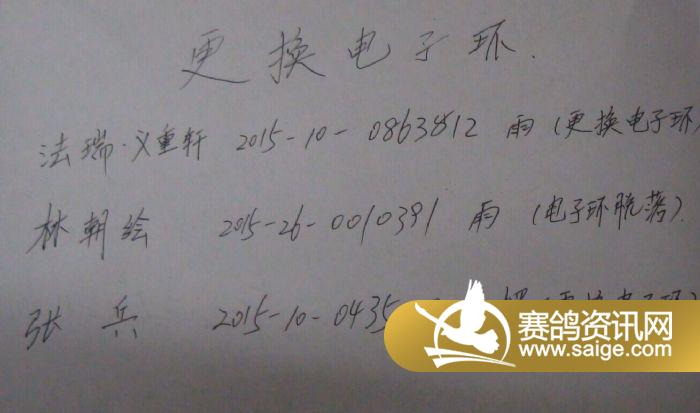 更换电子环.
法瑞·义重轩 2015-10-0863812 雨(更换电子环)
林朝绘 2015-26-0010391 雨 (电子环脱落).
张兵 2015-10-0435
赛鸽资讯网
www.saige.com